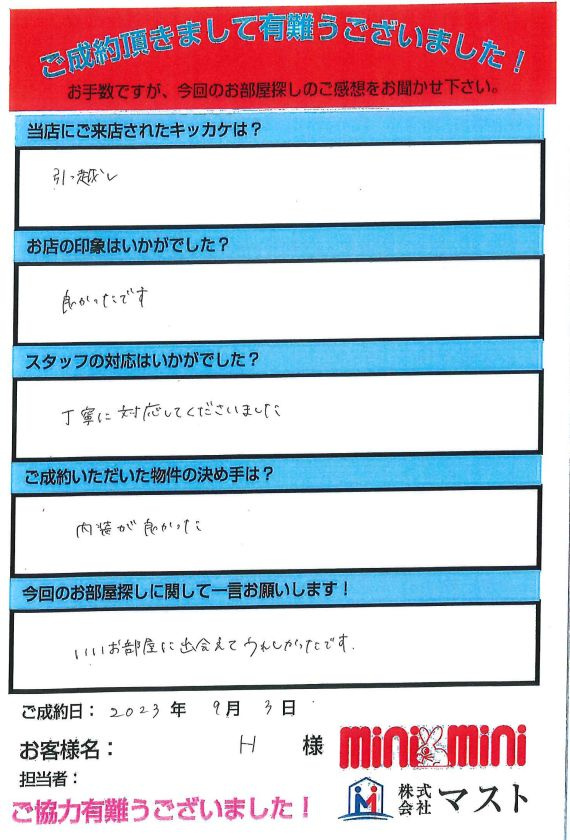 ご成約頂きまして有難うございました！
お手数ですが、今回のお部屋探しのご感想をお聞かせ下さい。
当店にご来店されたキッカケは？
引っ越し
お店の印象はいかがでした？
良かったです
スタッフの対応はいかがでした？
丁寧に対応してくださいました
ご成約いただいた物件の決め手は？
内装が良かった
今回のお部屋探しに関して一言お願いします！
いいお部屋に出会えてうれしかったです.
ご成約日：2023年 9月 3日
お客様名： H 様
mini mini
担当者：
株式会社マスト
ご協力有難うございました！